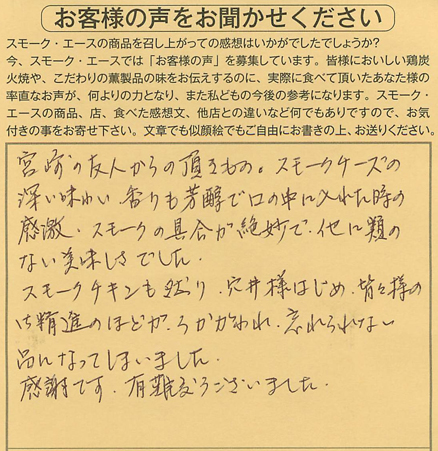 お客様の声をお聞かせください
スモーク・エースの商品を召し上がっての感想はいかがでしたでしょうか?
今、スモーク・エースでは「お客様の声」を募集しています。皆様においしい鶏炭
火焼や、こだわりの薫製品の味をお伝えするのに、実際に食べて頂いたあなた様の
率直なお声が、何よりの力となり、また私どもの今後の参考になります。スモーク・
エースの商品、店、食べた感想文、他店との違いなど何でもありですので、お気
付きの事をお寄せ下さい。文章でも似顔絵でもご自由にお書きの上、お送りください。
宮崎の友人からの頂きもの。スモークチーズの
深い味わい 香りも芳醇で口の中に入れた時の
感激・スモークの具合が絶妙で・他に類の
ない美味しさでした・
スモークチキンも然り・穴井様はじめ・皆々様の
ご精進のほどが・うかがわれ・忘れられない
品になってしまいました・
感謝です・有難うございました・